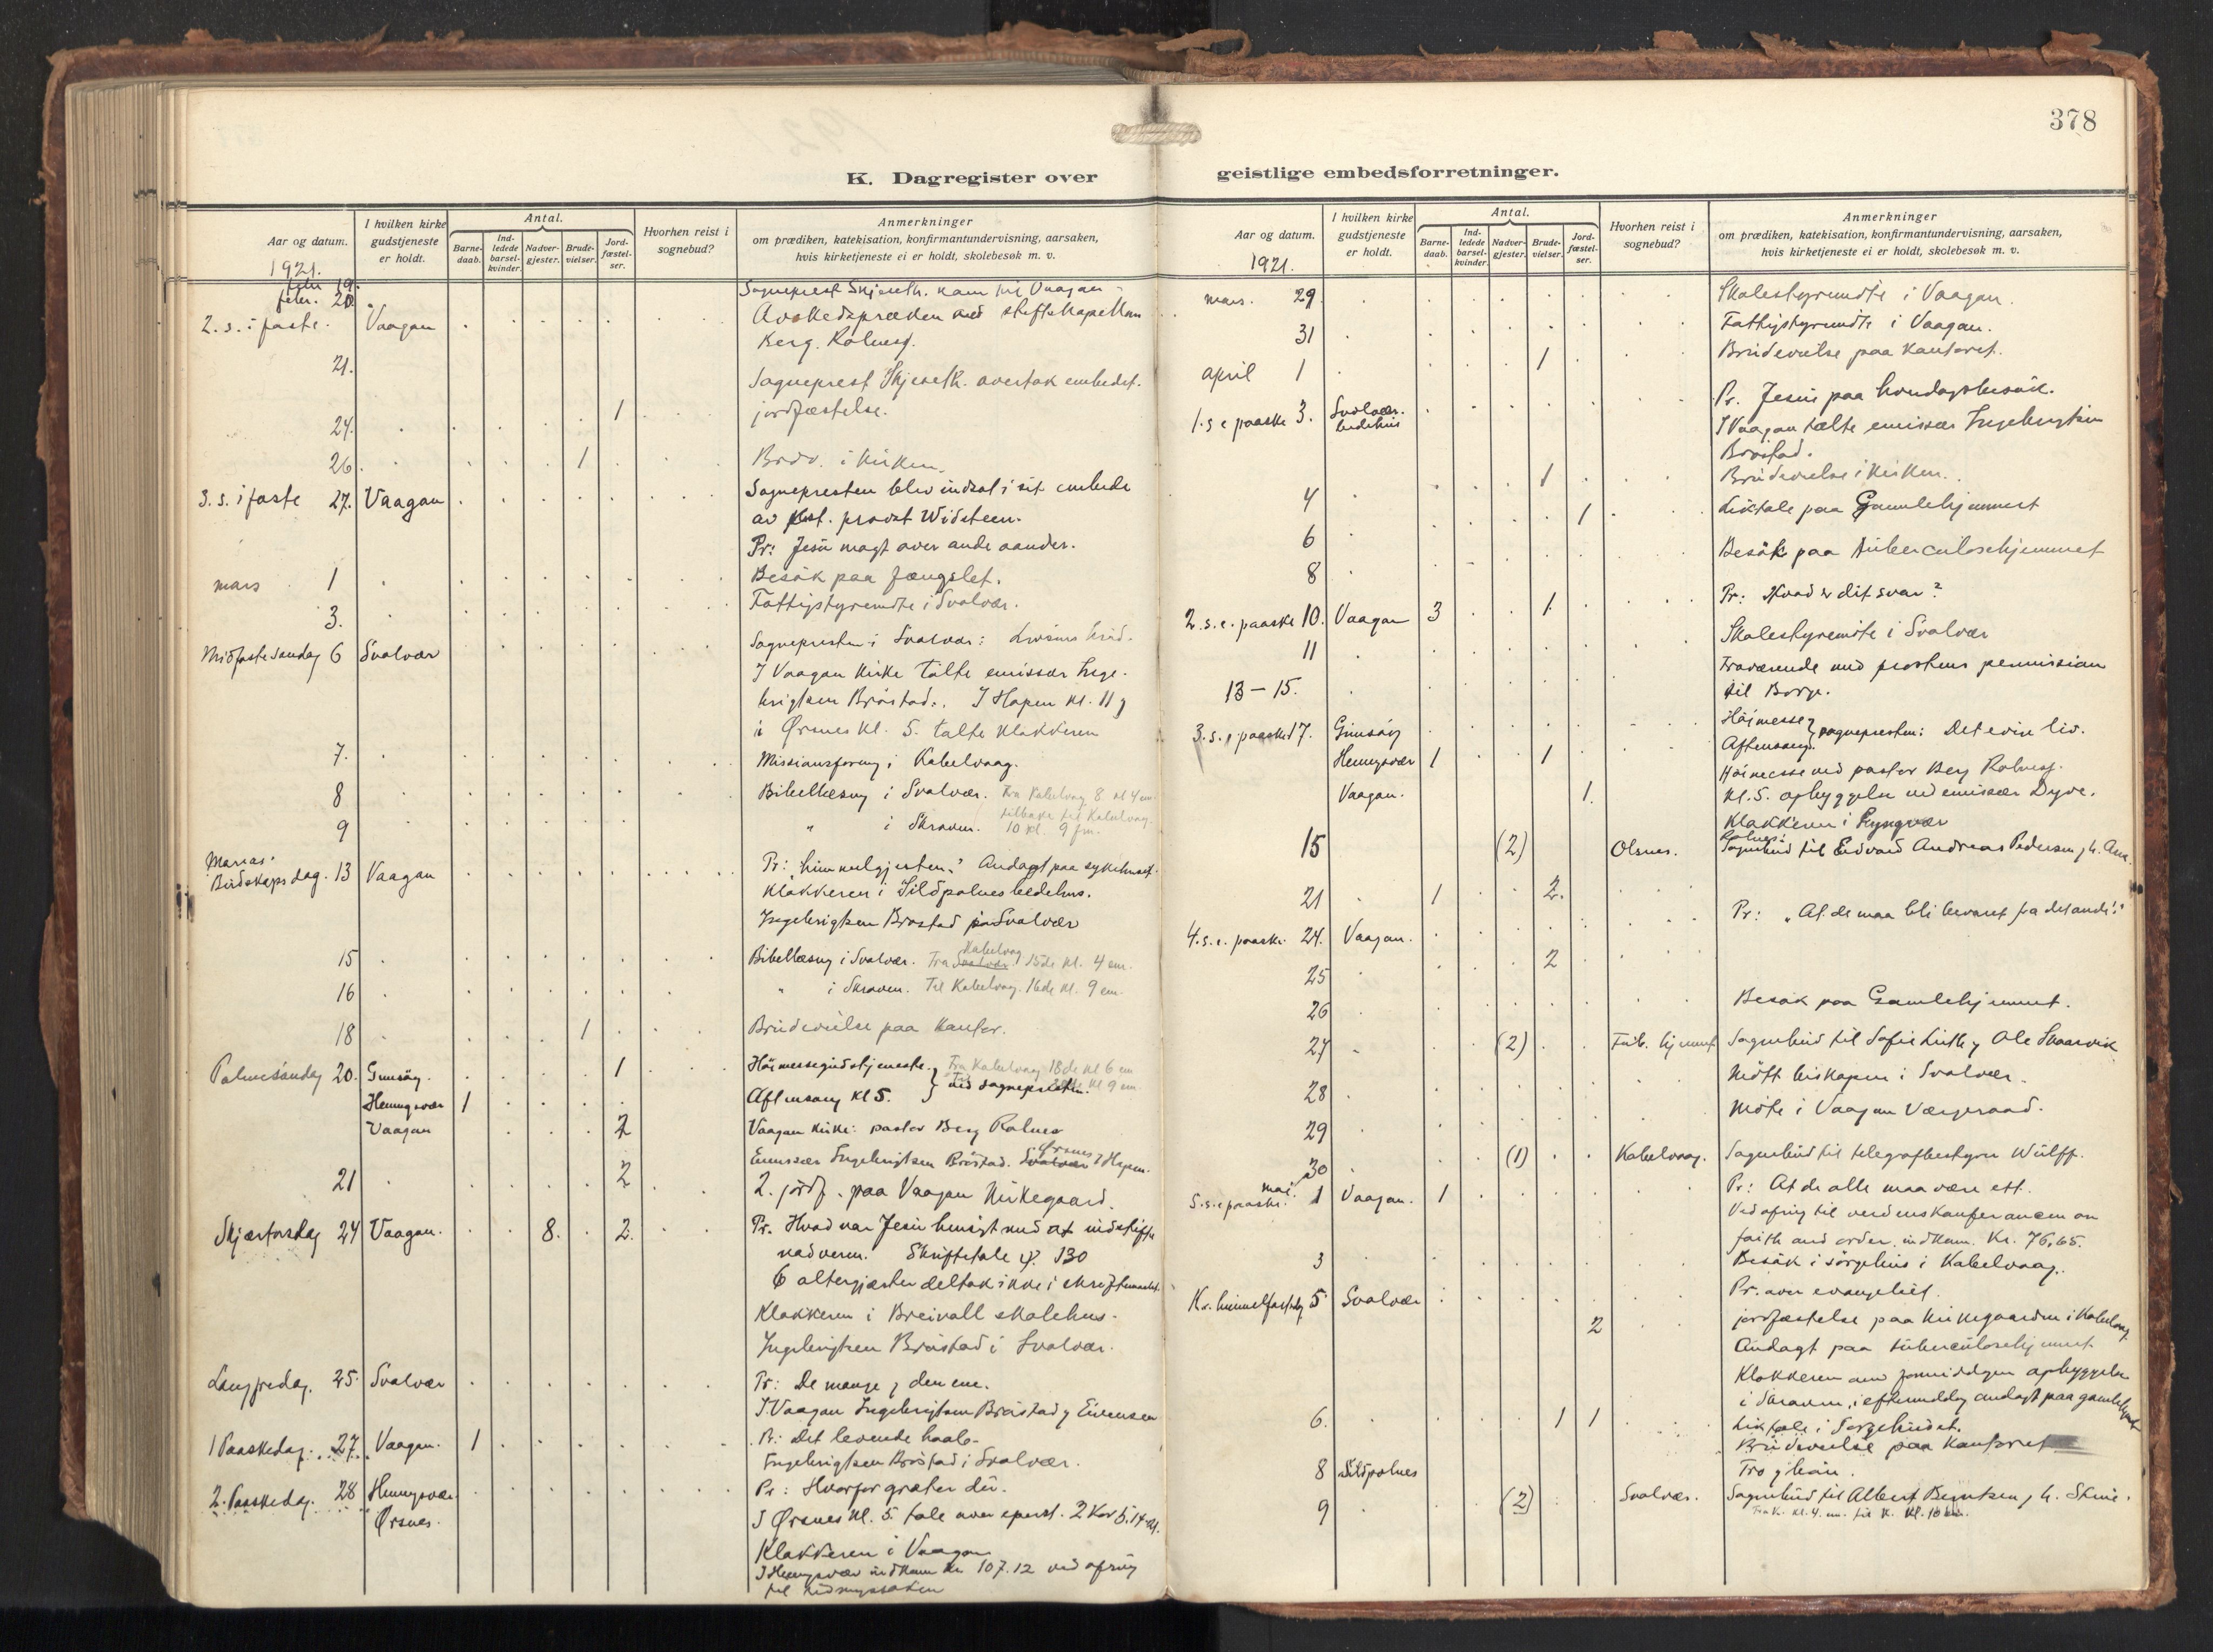 378
K. Dagregister over
geistlige embedsforretninger.
Aar og datum.
1921.
I hvilken kirke gudstjeneste er holdt.
Antal.
Barne-daab.
Ind-ledede barsel-kvinder.
Nadver-gjester.
Brude-vielser.
Jord-fæstel-ser.
Hvorhen reist i sognebud?
Anmerkninger
om prædiken, katekisation, konfirmantundervisning, aarsaken,
hvis kirketjeneste ei er holdt, skolebesøk m. v.
febr 19. Sogneprest Skjeseth. kam til Vaagan
febr. 20.
2. s. i faste. Vaagan Avskedspræken ved stiftskapellan
Berg. Rolness.
21. Sogneprest Skjeseth. overtok embedet.
24. 1 jordfæstelse.
26 1 Brdv. i kirken.
3. s. i faste 27. Vaagan Sognepresten blev indsat i sit embede
av kst. provst Widsteen.
Pr: Jesu magt over onde aander.
mars 1 Besøk paa fængslet.
3. Fattigstyremøte i Svolvær.
Midfastesøndag 6 Svolvær Sognepresten i Svolvær: Livsens brød.
I Vaagan kirke talte emissær Inge-
brigtsen Bråstad. I Hopen kl. 11 og
i Ørsnes kl. 5. talte klokkeren
7. Missionsforening i Kabelvaag.
8 Bibellæsning i Svolvær. Fra Kabelvaag 8. kl 4 em
tilbake til Kabelvaag
9 " i Skroven. 10 kl. 9 fm.
Marias
Budskaps dag. 13 Vaagan Pr: himmelgjesten. Andagt paa sykehuset.
Klokkeren i Sildpolnes bedehus.
Ingebrigtsen Bråstad i Svolvær
15 Bibellæsning i Svolvær. Fra Svolvær Kabelvaag 15de kl. 4 em.
16 " i Skroven. Til Kabelvaag. 16de kl. 9 em.
18 1 Brudevielse paa kontor.
Palmesøndag 20. Gimsøy. 1 Høimessegudstjeneste. Fra Kabelvaag 18de kl 6 em
Henningsvær 1 Aftensang kl 5. ved sognepresten. kl 9 em.
Vaagan 2 Vaagan kirke: pastor Berg Rolnes
Emissær Ingebrigtsen Bråstad. Svolvær Ørsnes og Hopen.
21 2 2. jordf. paa Vaagan kirkegaard.
Skjærtorsdag 24 Vaagan. 8. 2. Pr. Hvad var Jesu hensigt med at indstifte
nadveren. Skriftetale ψ. 130
6 altergjæster deltok ikke i skriftemaalet.
Klokkeren i Breivall skolehus.
Ingebrigtsen Bråstad i Svolvær.
Langfredag. 25. Svolvær Pr: De mange og den ene.
I Vaagan Ingebrigtsen Bråstad og Evensen
1 Paaskedag. 27. Vaagan. 1 Pr: Det levende haab.
Ingebrigtsen Bråstad i Svolvær.
2. Paaskedag. 28 Henningsvær Pr: Hvorfor græter du.
Ørsnes. I Ørsnes kl. 5. tale over epist. 2 Kor 5.14-21.
Klokkeren i Vaagan
I Henningsvær indkom kr 107.12 ved ofring
til
Aar og datum.
1921.
I hvilken kirke gudstjeneste er holdt.
Antal.
Barne-daab.
Ind-ledede barsel-kvinder.
Nadver-gjester.
Brude-vielser.
Jord-fæstel-ser.
Hvorhen reist i sognebud?
Anmerkninger
om prædiken, katekisation, konfirmantundervisning, aarsaken,
hvis kirketjeneste ei er holdt, skolebesøk m. v.
mars. 29. Skolestyremøte i Vaagan.
31 Fattigstyremøte i Vaagan.
april 1 1 Brudevielse paa kontoret.
1. s e paaske 3. Svolvær. bedehus Pr. Jesus paa hverdagsbesøk.
I Vaagan talte emissær Ingebrigtsen
Bråstad.
4 1 Brudevielse i kirken.
6 1 Liktale paa Gamlehjemmet
8 Besøk paa tuberculosehjemmet
2. s. e. paaske 10. Vaagan 3 1 Pr: Hvad er dit svar?
11 Skolestyremøte i Svolvær
13 – 15. Fraværende med prostens permission
til Borge.
3. s. e paaske 17. Gimsøy Høimesse
Henningsvær 1 1 Aftensang. sognepresten: Det evige liv.
Vaagan. 1. Høimesse ved pastor Berg Rolness.
Kl. 5. opbyggelse ved emissær Dyve.
Klokkeren i
15 (2) Olsnes. Sognebud til Edvard Andreas Pedersen og h.
21 1 2.
4. s. e. paaske 24. Vaagan. Pr: "At de maa bli bevaret fra det onde."
25 2
26 Besøk paa Gamlehjemmet.
27 (2) Tub. hjemmet Sognebud til Sofie Lutle og Ole Skaarvik
28 Møtt biskopen i Svolvær.
29 Møte i Vaagan Værgeraad.
30 (1) Kabelvaag. Sognebud til telegrafbestyrer Wulff.
mai.
5. s. e paaske. 1 Vaagan. 1 Pr: At de alle maa være ett.
Ved ofring til verdenskonferancen on
faith and order. indkom. Kr. 76,65.
3 Besøk i sørgehus i Kabelvaag.
Kr. himmelfartsdg 5 Svolvær Pr. over evangeliet.
2 jordfæstelse paa kirkegaarden i Kabelvaag
Andagt paa tuberculosehjemmet
Klokkeren om formiddagen opbyggelse
i Skroven, i eftermiddag andagt paa gamlehjemmet
6. 1 1 Liktale i Sørgehuset.
Brudevielse paa kontoret
8 Sildpolnes Tro og bøn.
9 (2) Svolvær. Sognebud til Albert Berntsen og h.
Fra K. kl. 4. em. til K. kl. 10 em.